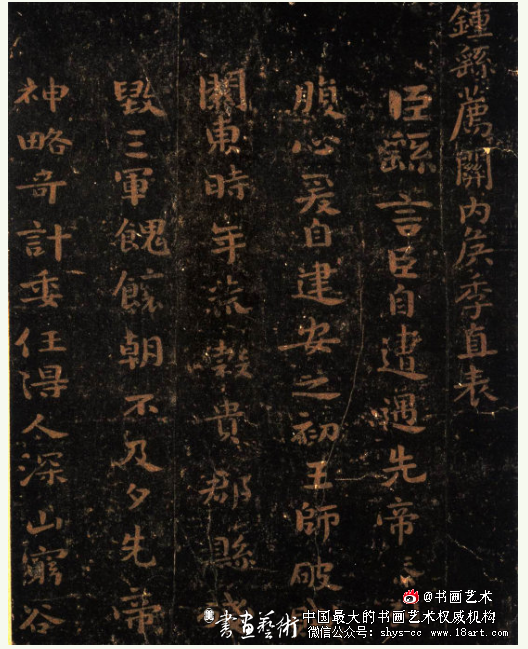 鍾繇薦關内侯季直表
臣繇言臣自遭遇先帝
腹心爰自建安之初王師破
關東時年荒穀貴郡縣
毀三軍餽饟朝不及夕先帝
神略奇計委任得人深山窮谷
@书画艺术
書畫藝術
中国最大的书画艺术权威机构
微信公众号：shys-cc www.18art.com